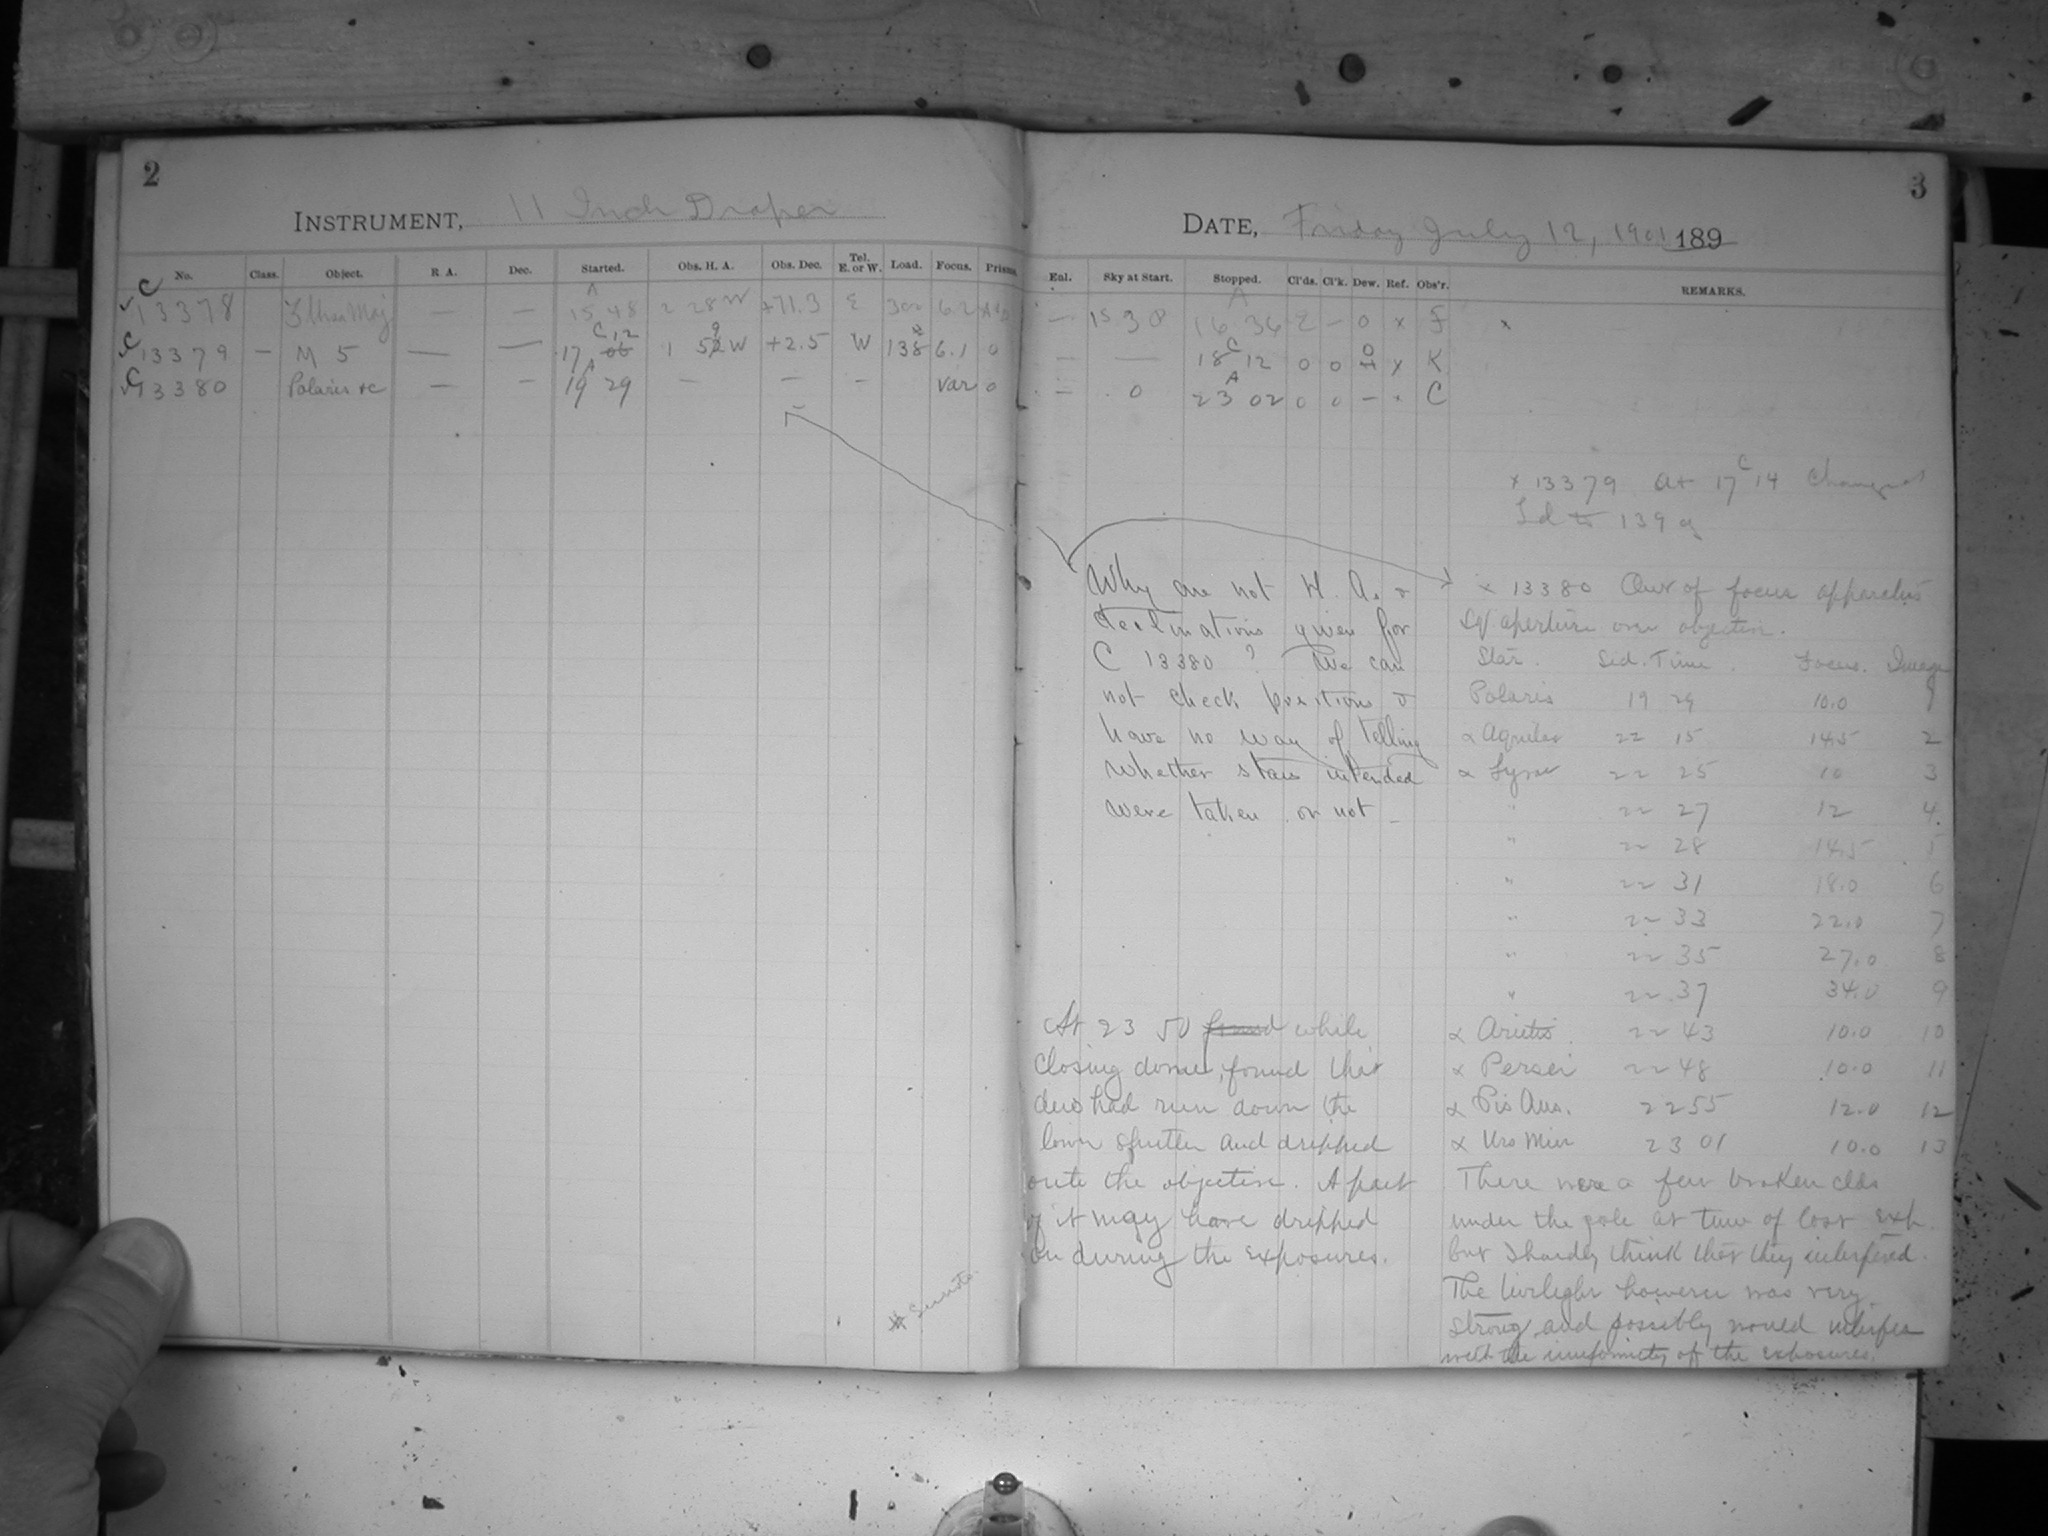 2
INSTRUMENT, 11 Inch Draper
No. Class. Object. R A. Dec. Started. Obs. H. A. Obs. Dec. Tel. E. or W. Load. Focus. Prisms.
C 13378 — — 15 A 48 2 28 W +71.3 E 302 6.2
C 13379 — M 5 — — 17 C 12 06 1 59 W +2.5 W 138 6.1 0
C 13380 Polaris &c — — 19 A 29 — — — var 0
3
DATE, Friday July 12, 1901 189
Enl. Sky at Start. Stopped. Cl'ds. Cl'k. Dew. Ref. Obs'r. REMARKS.
— 15 38 16 A 36 — 0 x F x
— — 18 C 12 0 0 0 x K
— 0 23 A 02 0 0 — x C
x 13379 at 17 C 14 Changed
Ld to 139 g
Why are not H. A. &
declinations given for
C 13380 ? We can
not check positions &
have no way of telling
whether stars intended
were taken or not —
x 13380 Out of focus apparatus
Sq aperture over objective.
Star. Sid. Time. Focus. Image
Polaris 19 29 10.0 1
α Aquilae 22 15 14.5 2
α Lyrae 22 25 10 3
" 22 27 12 4.
" 22 28 14.5 5
" 22 31 18.0 6
" 22 33 22.0 7
" 22 35 27.0 8
" 22 37 34.0 9
α Arietis 22 43 10.0 10
α Persei 22 48 10.0 11
α Pis Aus. 22 55 12.0 12
α Urs Min 23 01 10.0 13
There were a few broken clds
under the pole at time of last exp.
but I hardly think that they interfered.
The twilight however was very
strong and possibly would interfere
with the uniformity of the exposures.
At 23 50 found while
closing dome, found that
dew had run down the
lower shutter and dripped
onto the objective. A part
of it may have dripped
on during the exposures.